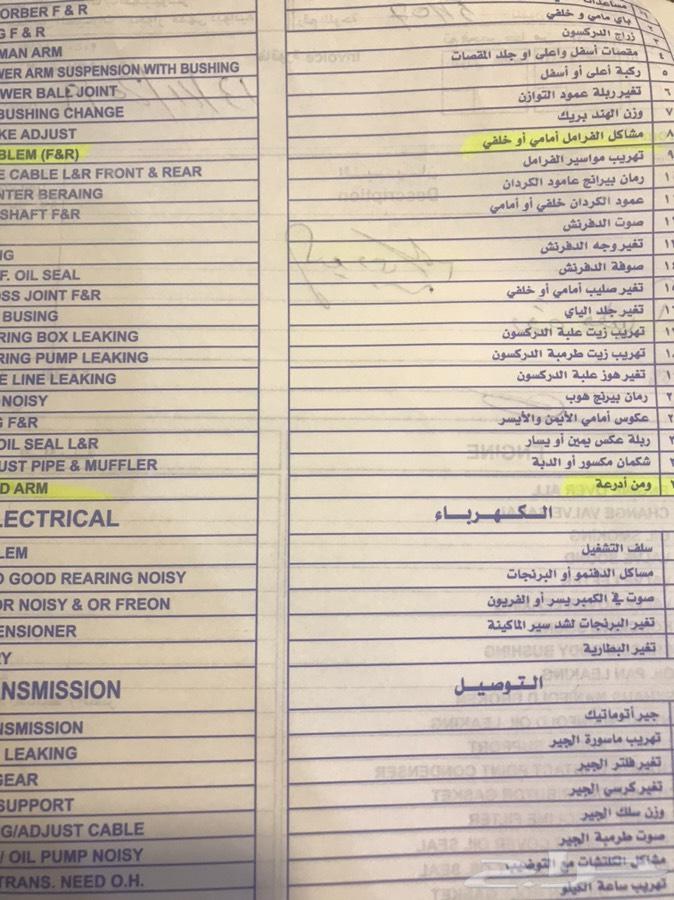 ORBER F & R مساعدات
G F & R ياي مامي و خلفي
MAN ARM زراج الدركسون
WER ARM SUSPENSION WITH BUSHING مقصات أسفل واعلى او جلد المقصات ٤
WER BALL JOINT ركبة أعلى أو أسفل ٥
BUSHING CHANGE تغير ربلة عمود التوازن ٦
KE ADJUST وزن الهند بريك ٧
BLEM (F&R) مشاكل الفرامل أمامي أو خلفي ٨
E CABLE L&R FRONT & REAR تهريب مواسير الفرامل ٩
NTER BERAING رمان بيرانج عامود الكردان
SHAFT F&R عمود الكردان خلفي أو أمامي
صوت الدفرنش
NG تغير وجه الدفرنش
F. OIL SEAL صوفة الدفرنش
OSS JOINT F&R تغير صليب أمامي أو خلفي
BUSING تغير جلد الياي
RING BOX LEAKING تهريب زيت علبة الدركسون
RING PUMP LEAKING تهريب زيت طرمبة الدركسون
E LINE LEAKING تغير هوز علبة الدركسون
NOISY رمان بيرنج هوب
G F&R عكوس أمامي الأيمن والأيسر
OIL SEAL L&R ربلة عكس يمين أو يسار
UST PIPE & MUFFLER شكمان مكسور أو الدبة
D ARM ومن أدرعة
LECTRICAL الكهرباء
LEM سلف التشغيل
D GOOD REARING NOISY مساكل الدفنمو أو البرنجات
OR NOISY & OR FREON صوت في الكمبر يسر أو الفريون
ENSIONER تغير البرنجات لشد سير الماكينة
RY تغير البطارية
NSMISSION التوصيل
NSMISSION جير أتوماتيك
LEAKING تهريب ماسورة الجير
GEAR تغير فلتر الجير
SUPPORT تغير كرسي الجير
G/ADJUST CABLE وزن سلك الجير
/ OIL PUMP NOISY صوت طرمبة الجير
TRANS. NEED O.H. مشاكل الكلتشات مع التوضيب
تهريب ساعة الكيلو